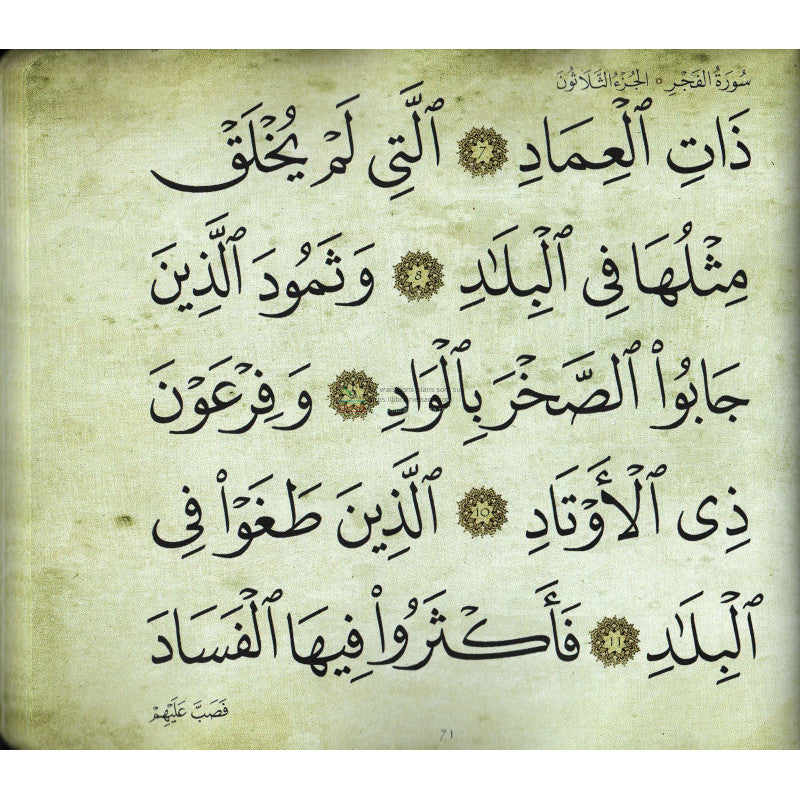 سُورَةُ الفَجْرِ ۞ الجُزْءُ الثَّلَاثُونَ
ذَاتِ ٱلْعِمَادِ 7 ٱلَّتِي لَمْ يُخْلَقْ
مِثْلُهَا فِي ٱلْبِلَٰدِ 8 وَثَمُودَ ٱلَّذِينَ
جَابُوا۟ ٱلصَّخْرَ بِٱلْوَادِ 9 وَفِرْعَوْنَ
ذِى ٱلْأَوْتَادِ 10 ٱلَّذِينَ طَغَوْا۟ فِي
ٱلْبِلَٰدِ 11 فَأَكْثَرُوا۟ فِيهَا ٱلْفَسَادَ
فَصَبَّ عَلَيْهِمْ
71